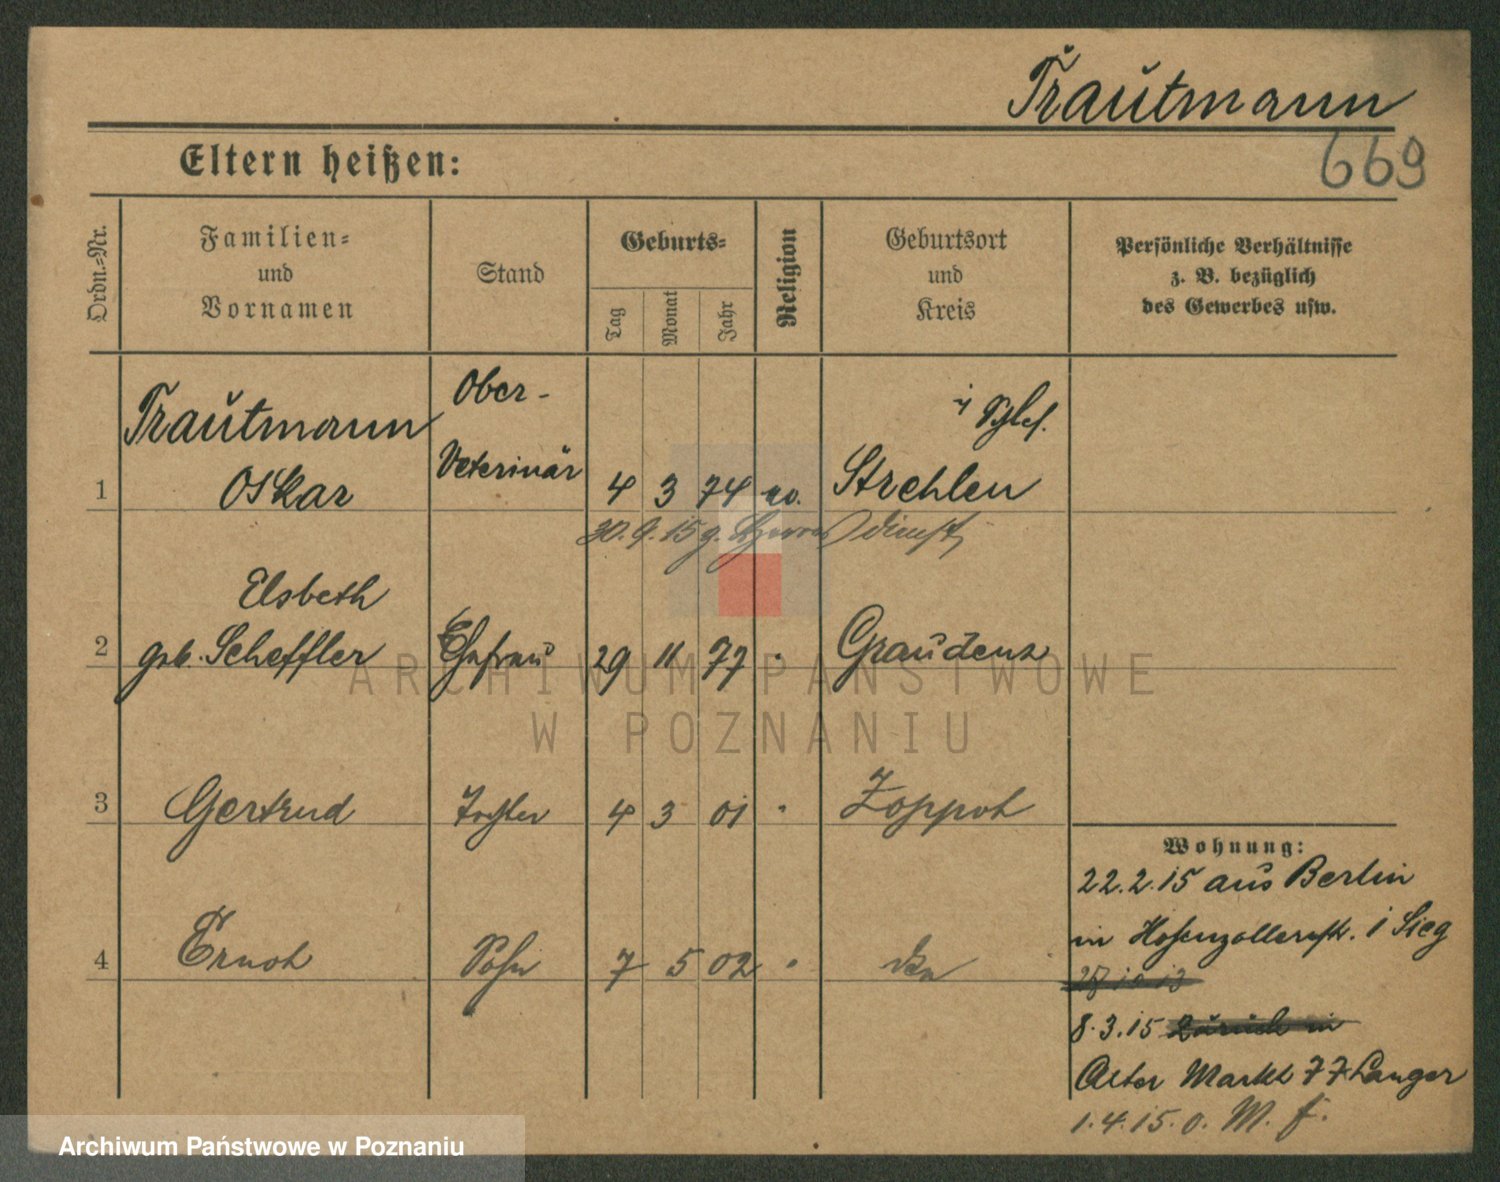 Trautmann
669
Eltern heißen:
Ordn.-Nr.
Familien-
und
Vornamen
Stand
Geburts-
Tag
Monat
Jahr
Religion
Geburtsort
und
Kreis
Persönliche Verhältnisse
z. B. bezüglich
des Gewerbes usw.
Ober-
i Schles.
Trautmann
Veterinär
1 Oskar 4 3 74 ev. Strehlen
30.9.15 g. dienst
Elsbeth
2 geb. Scheffler Ehefrau 29 11 77 " Graudenz
ARCHIWUM PAŃSTWOWE
W POZNANIU
3 Gertrud Tochter 4 3 01 " Zoppot
Wohnung:
22.2.15 aus Berlin
in Hohenzollernstr. 1 Sieg
4 Ernst Sohn 7 5 02 "
8.3.15 zurück in
Alter Markt 77 Langer
1.4.15. o. M. f.
Archiwum Państwowe w Poznaniu